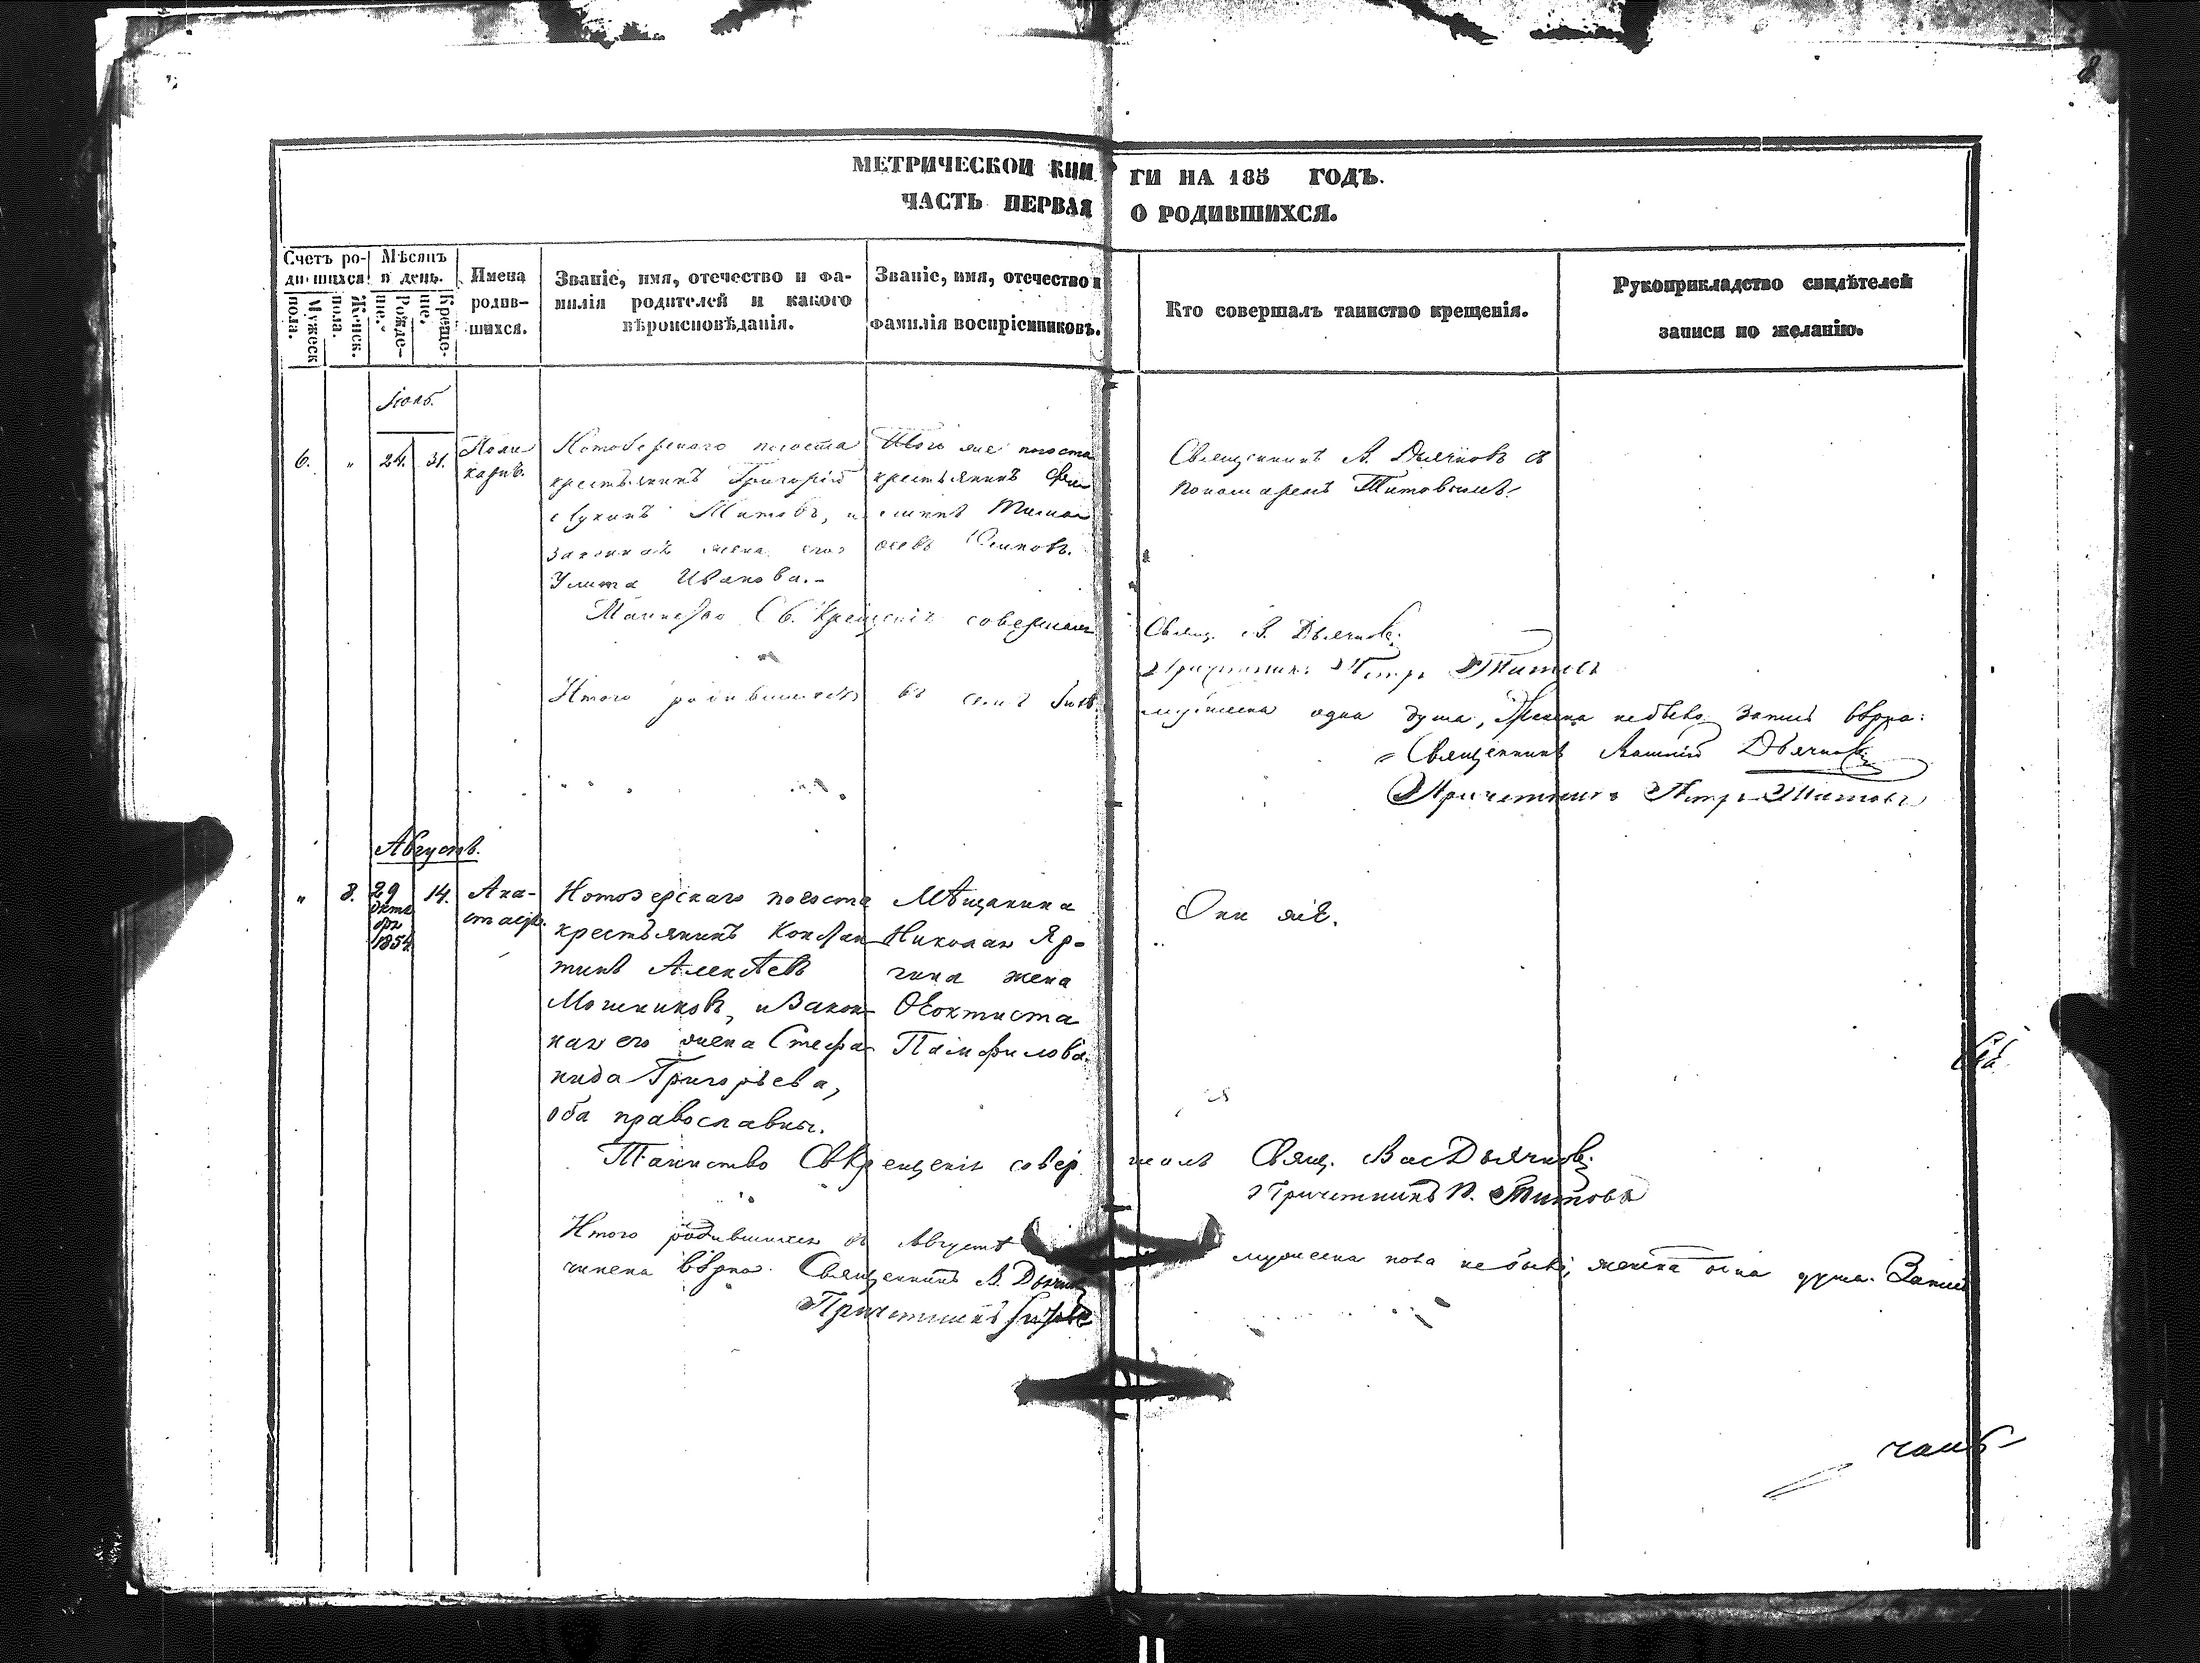 8
МЕТРИЧЕСКОЙ КНИГИ НА 185 ГОДЪ.
ЧАСТЬ ПЕРВАЯ О РОДИВШИХСЯ.
Счетъ родившихся
Мужеск пола.
Женск. пола.
Мѣсяцъ и день.
Рожденіе.
Крещеніе.
Имена родившихся.
Званіе, имя, отечество и фамилія родителей и какого вѣроисповѣданія.
Званіе, имя, отечество и фамилія воспріемниковъ.
Кто совершалъ таинство крещенія.
Рукоприкладство свидѣтелей записи по желанію.
6. " 24. 31.
Поли
карпъ.
Нотозерскаго погоста
крестьянинъ Григорій
Титовъ, и
законная жена его
Улита Иванова.-
Того же погоста
крестьянинъ
Священникъ В. Дьячковъ съ
пономаремъ Титовымъ.
Таинство Св. Крещенія совершалъ Свящ. В. Дьячковъ.
Причетникъ Петръ Титовъ
Итого родившихся въ мужеска одна душа, женска небыло запись вѣрна:
Священникъ Дьячковъ
Причетникъ Петръ Титовъ
Августъ.
" 8. 29 октября 1854 14.
Ана-
стасія.
Нотозерскаго погоста
крестьянинъ Констан
тинъ Алексѣевъ
Мошниковъ, и закон
ная его жена Стефа
нида Григорьева,
оба православны.
Мѣщанина
Николая Яр-
гина жена
Ѳеоктиста
Памфилова.
Они же.
Таинство Св Крещенія совершалъ Свящ. Вас Дьячковъ
Причетникъ П. Титовъ
Итого родившихся въ Августѣ мужеска пола небыло, женска одна душа. Запись
чинена вѣрно. Священникъ В. Дьячковъ
Причетникъ
часть